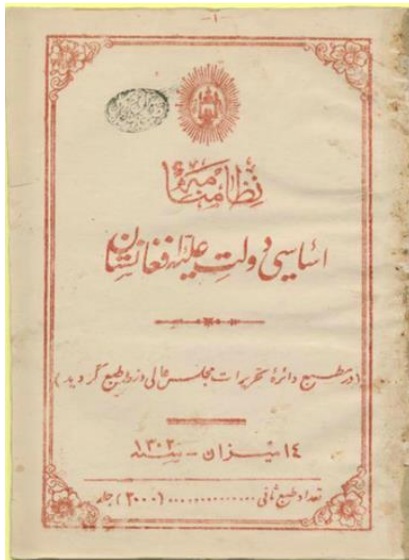 -۱-
نظامنامهٔ
اساسی دولت علیهٔ افغانستان
(در مطبع دائرهٔ تحریرات مجلس عالی وزرا طبع گردید)
۱٤ میزان - سنه ۱۳۰۲
تعداد طبع ثانی ............ (۲۰۰۰) جلد